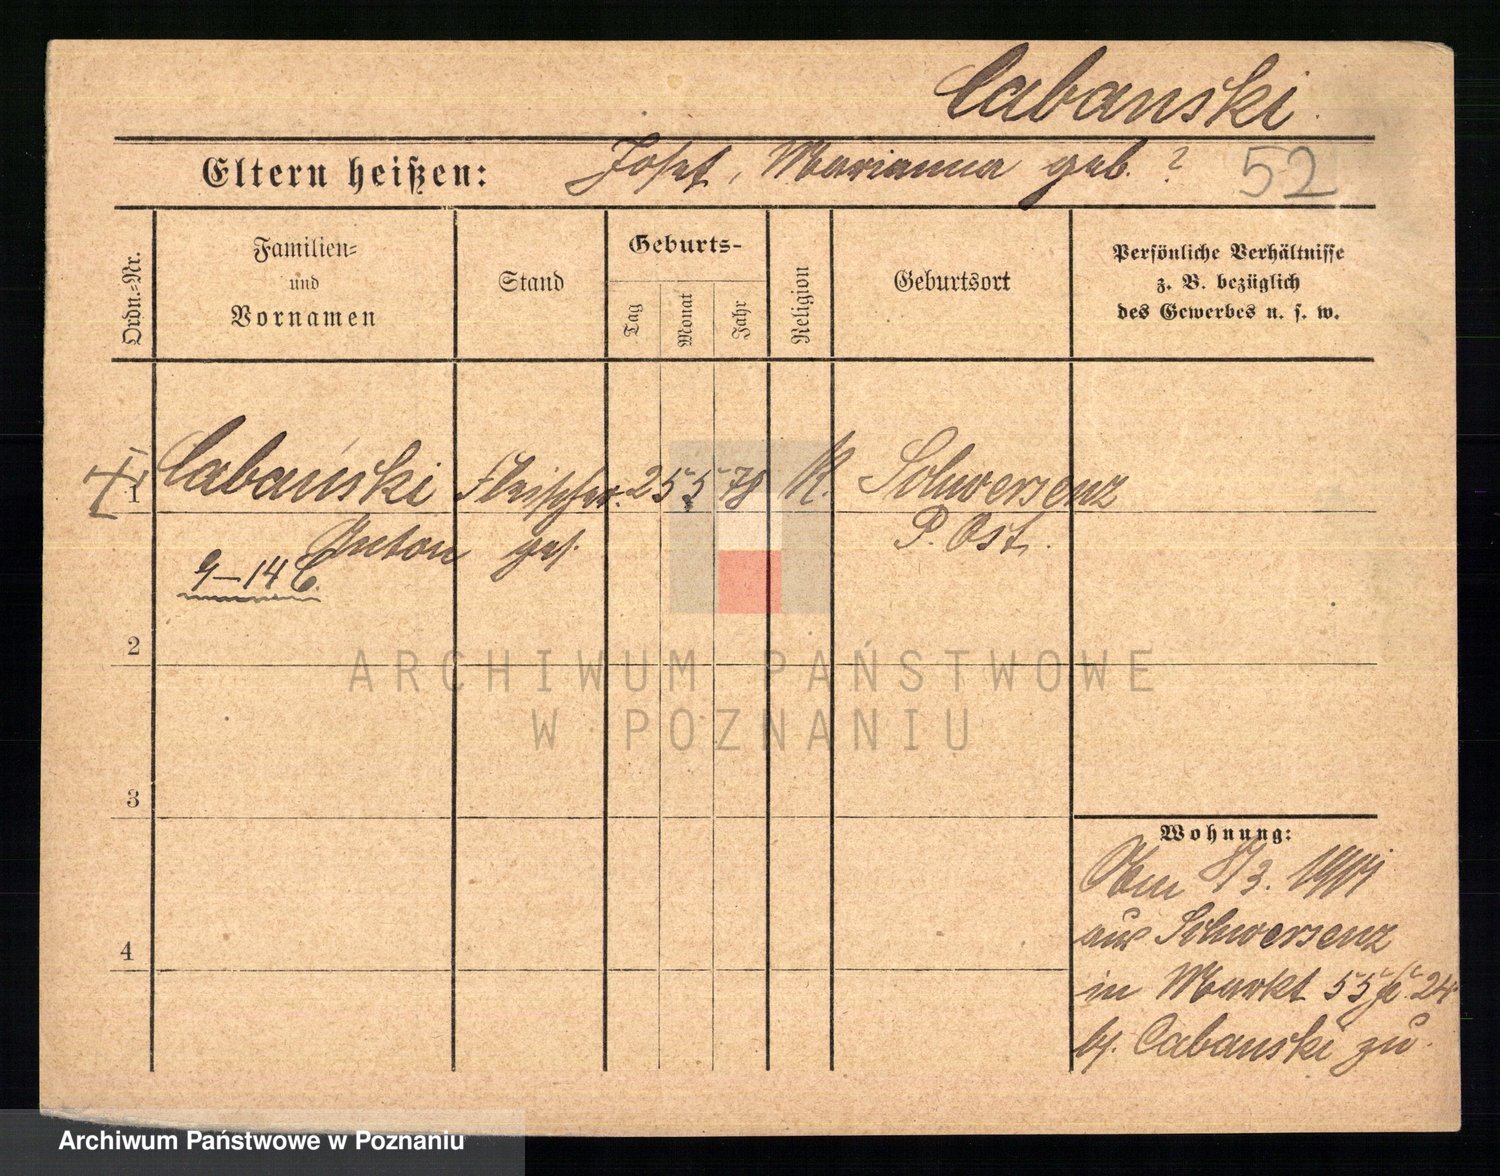 Cabanski.
Eltern heißen: Josef, Marianna geb. ? 52
Ordn.-Nr.
Familien-
und
Vornamen
Stand
Geburts-
Tag
Monat
Jahr
Religion
Geburtsort
Persönliche Verhältnisse
z. B. bezüglich
des Gewerbes u. s. w.
1 Cabański Fleischer 25 5 78 K. Schwersenz
Anton ges. P. Ost.
9-14 C.
2
ARCHIWUM PAŃSTWOWE
W POZNANIU
3
Wohnung:
/3. 1901
aus Schwersenz
4
in Markt 55 24
bei Cabanski zu.
Archiwum Państwowe w Poznaniu